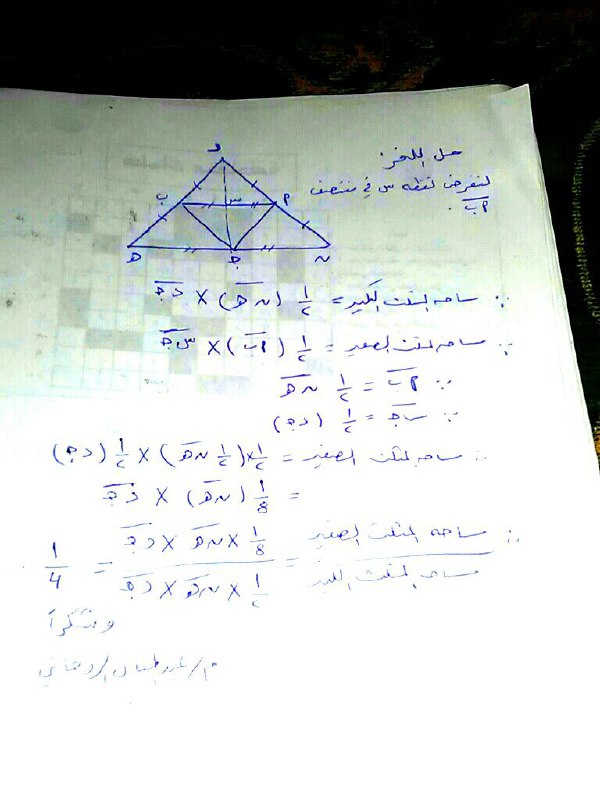 حل اللغز:
لنفرض نقطه س في منتصف
أب.
د
ب س أ
هـ جـ ن
∴ مساحه المثلث الكبير = ١/٢ (ن هـ) × د جـ
∴ مساحه المثلث الصغير = ١/٢ (أب) × س جـ
∵ أب = ١/٢ ن هـ
∵ س جـ = ١/٢ (د جـ)
∴ مساحه المثلث الصغير = ١/٢ × (١/٢ ن هـ) × ١/٢ (د جـ)
= 1/8 (ن هـ) × د جـ
∴ مساحه المثلث الصغير / مساحه المثلث الكبير = 1/8 × ن هـ × د جـ / ١/٢ × ن هـ × د جـ = 1/4
وشكراً
م/